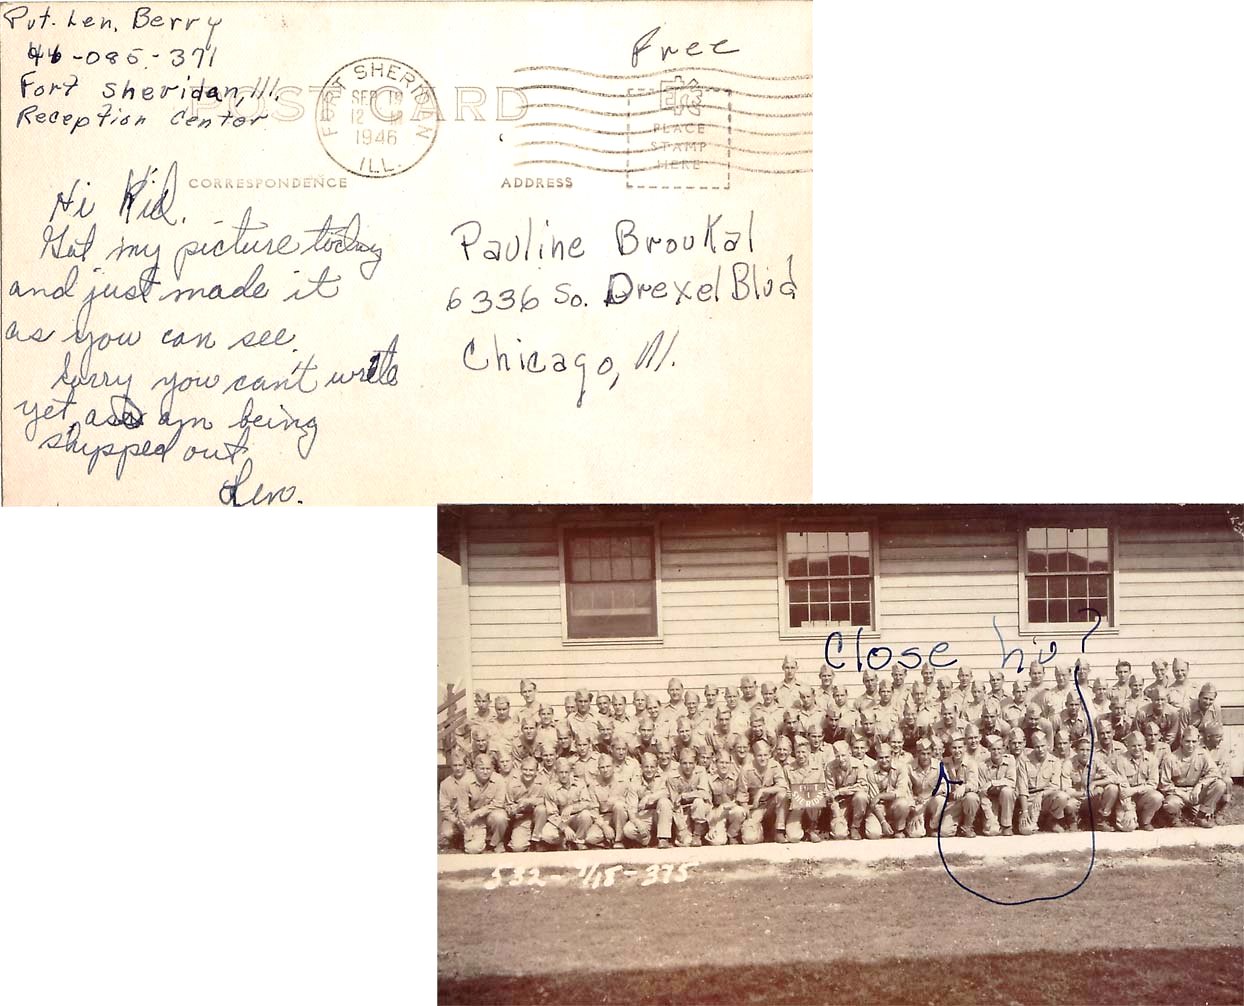 Pvt. Len, Berry
46-085-371
Fort Sheridan, Ill.
Reception Center
Free
POST CARD
FORT SHERIDAN
SEP
12
1946
ILL.
PLACE
STAMP
HERE
CORRESPONDENCE
ADDRESS
Hi Kid.
Got my picture today
and just made it
as you can see.
Sorry you can't write
yet, as am being
shipped out.
Len.
Pauline Broukal
6336 So. Drexel Blvd
Chicago, Ill.
Close huh?
SHERIDAN
532-7/18-375